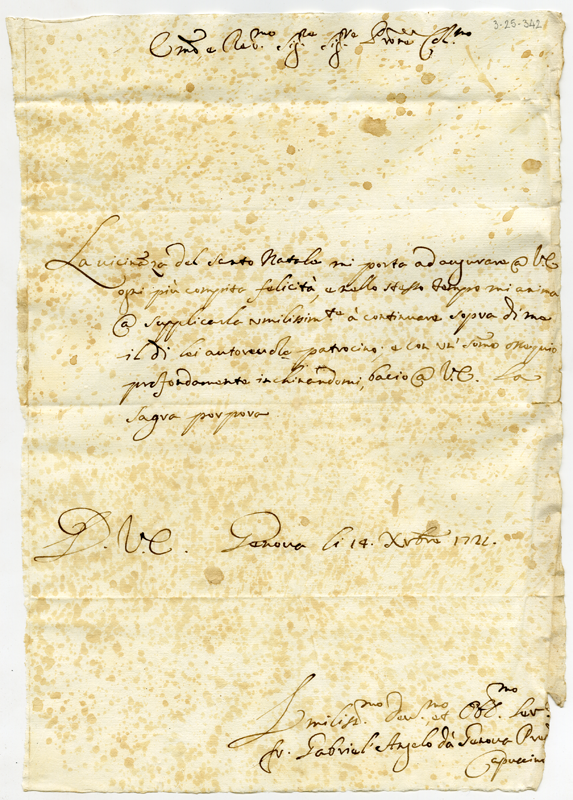 3-25-342
Em.o e Rev.mo Sig.re Sig.re Prone Col.mo
La vicinza del Santo Natale mi porta ad augurare @ V.E.
ogni più compita felicità, e nello stesso tempo mi anima
@ supplicarla umilissim.te à continuare sopra di me
il di lei autoreuole patrocino. e con un' somo ossequio
profondamente inchinandomi, bacio @ V.E. La
sagra porpora
D. V.E. Genova li 14. Xrbre 1721.
Umiliss.mo Deu.mo et Obl.mo Ser.
fr. Gabriel' Angelo dà Genova Pre
Capuccino